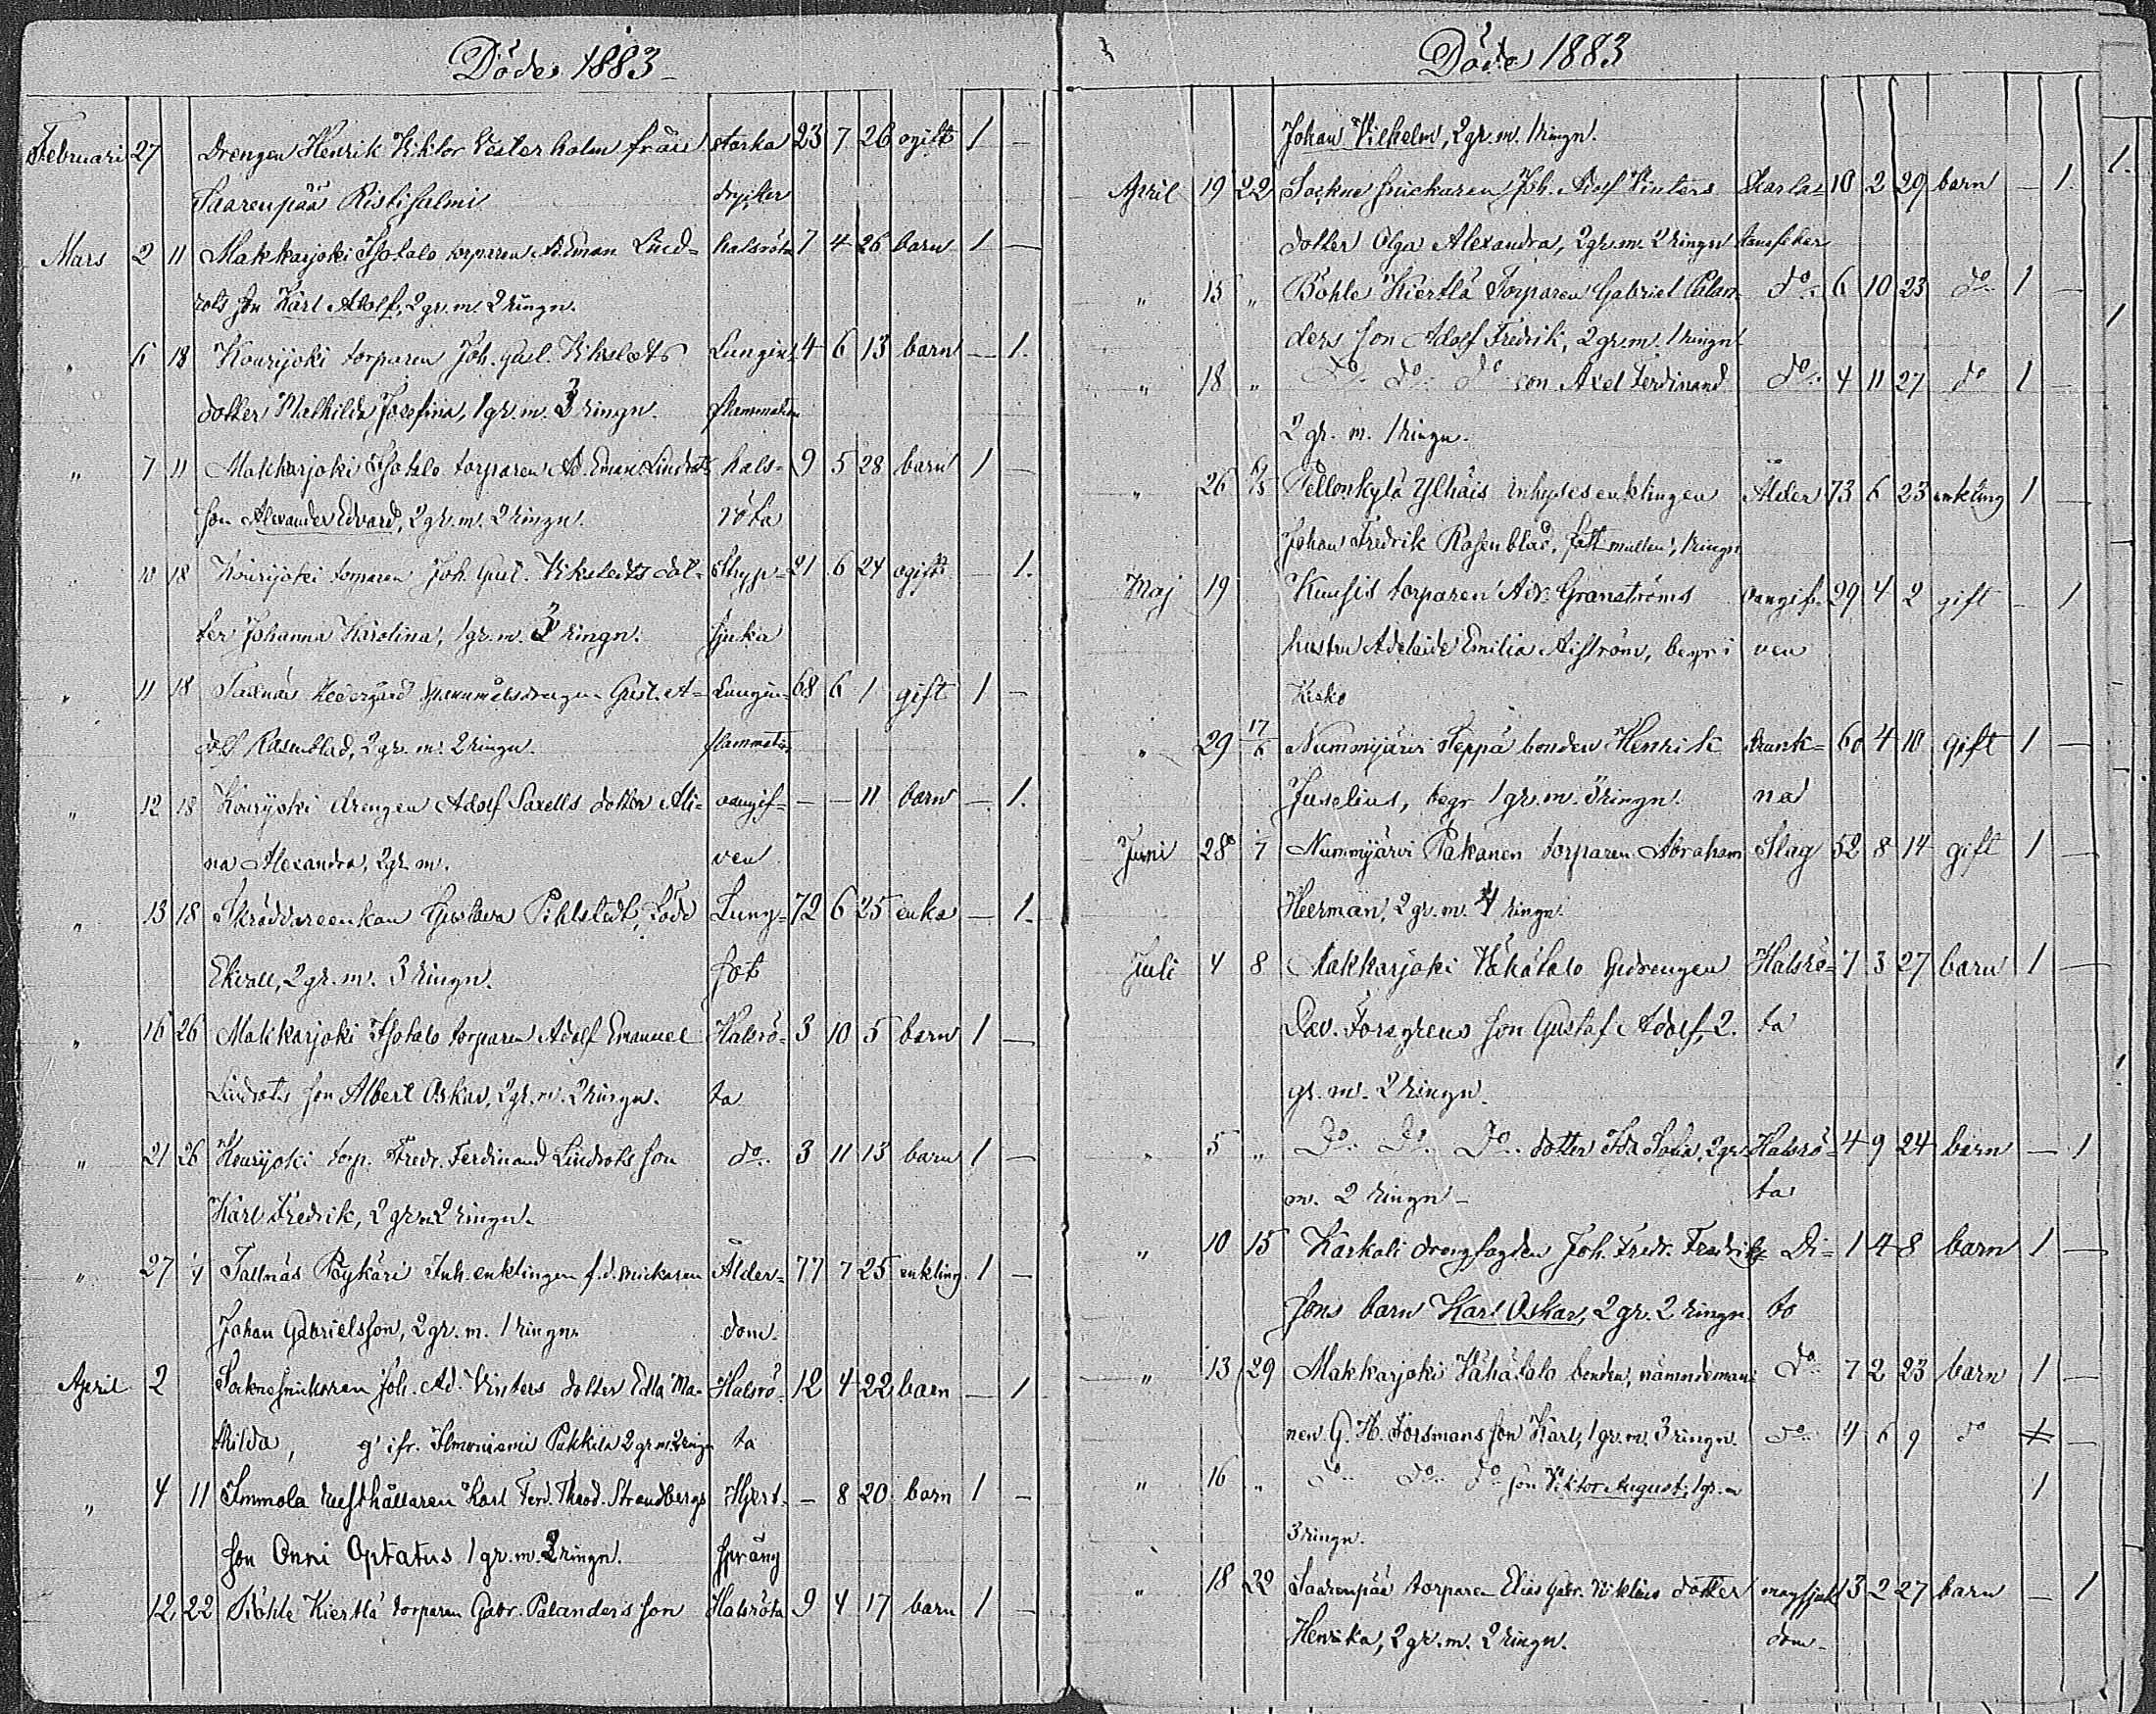 Döde 1883
Februari 27 Drengen Henrik Viktor Vesterholm från starka 23 7 26 ogift 1 -
Saarenpää Ristisalmi drycker
Mars 2 11 Makkarjoki Isotalo torparen Ad. Eman Lind- halsröta 7 4 26 barn 1 -
rots son Karl Adolf, 2 gr. m. 2 ringn.
" 6 18 Kourjoki torparen Joh. Gust. Vikstedts Lungin- 4 6 13 barn - 1.
dotter Mathilda Josefina, 1 gr. m. 3 ringn. flammation
" 7 11 Makkarjoki Isotalo torparen Ad. Eman. Lindrots hals- 9 5 28 barn 1 -
son Alexander Edvard, 2 gr. m. 2 ringn. röta
" 10 18 Kourjoki torparen Joh. Gust. Vikstedts dot- Stryp- 21 6 24 ogift - 1.
ter Johanna Karolina, 1 gr. m. 3 ringn. sjuka
" 11 18 Gust. Ad- Lungin- 68 6 1 gift 1 -
olf Rosenblad, 2 gr. m. 2 ringn. flammation
" 12 18 Kourjoki drengen Adolf Saxells dotter Ali- oangif- - - 11 barn - 1.
na Alexandra, 2 gr. m. ven
" 13 18 Skräddareenkan Gustava Pihlstedt, född Lung- 72 6 25 enka - 1.
Ekvall, 2 gr. m. 3 ringn. sot
" 16 26 Makkarjoki Isotalo torparen Adolf Emanuel Halsrö- 3 10 5 barn 1 -
Lindrots son Albert Oskar, 2 gr. m. 2 ringn. ta
" 21 26 Kourjoki torp. Fredr. Ferdinand Lindrots son do. 3 11 13 barn 1 -
Karl Fredrik, 2 gr. m 2 ringn.
" 27 Tallnäs Inh. enklingen f. d. Ålder- 77 7 25 enkling 1 -
Johan Gabrielsson, 2 gr. m. 1 ringn. dom.
April 2 Sockne snickaren Joh. Ad. Vinters dotter Edla Ma- Halsrö- 12 4 22 barn - 1
thilda, ifr. Ilmoniemi Pakkila 2 gr m. 2 ringn ta
" 4 11 Immola rusthållaren Karl Ferd. Theod. Strandbergs Hjert- - 8 20 barn 1 -
son Onni Optatus 1 gr. m. 2 ringn. språng
12 22 Böhle Kierttä torparen Gabr. Palanders son Halsröta 9 4 17 barn 1 -
Döde 1883
Johan Vilhelm, 2 gr. m. 1 ringn.
April 19 22 Sockne snickaren Joh. Adolf Vinters Skarla- 10 2 29 barn - 1.
dotter Olga Alexandra, 2 gr. m. 2 ringn
" 15 " Böhle Kierttä Torparen Gabriel Palan- do. 6 10 23 do 1 -
ders son Adolf Fredrik, 2 gr. m. 1 ringn
" 18 " Do. Do. Do son Axel Ferdinand do. 4 11 27 do 1 -
2 gr. m. 1 ringn.
" 26 Pellonkylä Ylhäis inhysesenklingen Ålder 73 6 23 enkling 1 -
Johan Fredrik Rosenblad, 1 ringn
Maj 19 Kuusis torparen Adr. Granströms oangif- 29 4 2 gift - 1
hustru Adelaide Emilia begr. i ven
Kisko
" 29 17/6 Nummijärvi Seppä bonden Henrik Drunk- 60 4 10 gift 1 -
Juselius, begr 1 gr. m. 3 ringn. nad
Juni 28 Nummijärvi Pakanen torparen Abraham Slag 52 8 14 gift 1 -
Heerman, 2 gr. m. 4 ringn.
Juli 4 8 Makkarjoki Vähätalo Gdrengen Halsrö- 7 3 27 barn 1 -
Dav. Forsgrens son Gustaf Adolf, 2. ta
gr. m. 2 ringn.
" 5 " Do. Do. Do. dotter Ida Sofia, 2 gr. Halsrö- 4 9 24 barn - 1
m. 2 ringn - ta
" 10 15 Karkali drengfogden Joh. Fredr. Fredriks Di- 1 4 8 barn 1 -
sons barn Karl Oskar, 2 gr. 2 ringn. to
" 13 29 Makkarjoki Vähätalo bonden, nämndeman- Do 7 2 23 barn 1 -
nen G. H. Forsmans son Karl, 1 gr. m. 3 ringn. do. 4 6 9 do 1 -
" 16 " Do. Do. Do son Viktor August, 1 gr. m 1
3 ringn.
" 18 22 Saarenpää torparen Elias Gabr. Niklins dotter magsjuk 3 2 27 barn - 1
Henrika, 2 gr. m. 2 ringn. dom-